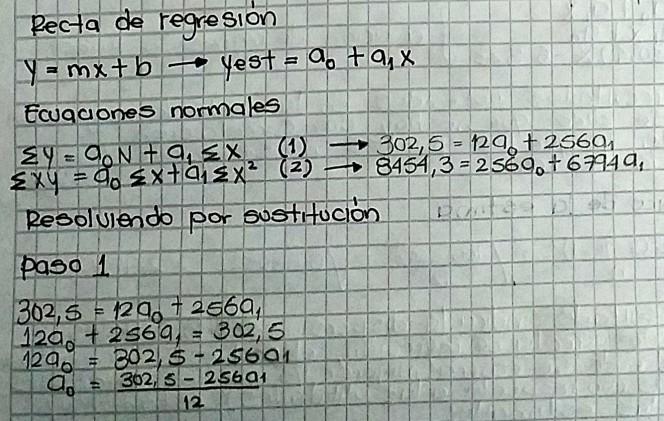 Recta de regresión
y = mx + b → yest = a₀ + a₁x
Ecuaciones normales
Σy = a₀N + a₁Σx (1) → 302,5 = 12a₀ + 256a₁
Σxy = a₀Σx + a₁Σx² (2) → 8454,3 = 256a₀ + 6794a₁
Resolviendo por sustitución
paso 1
302,5 = 12a₀ + 256a₁
12a₀ + 256a₁ = 302,5
12a₀ = 302,5 - 256a₁
a₀ = 302,5 - 256a₁
12